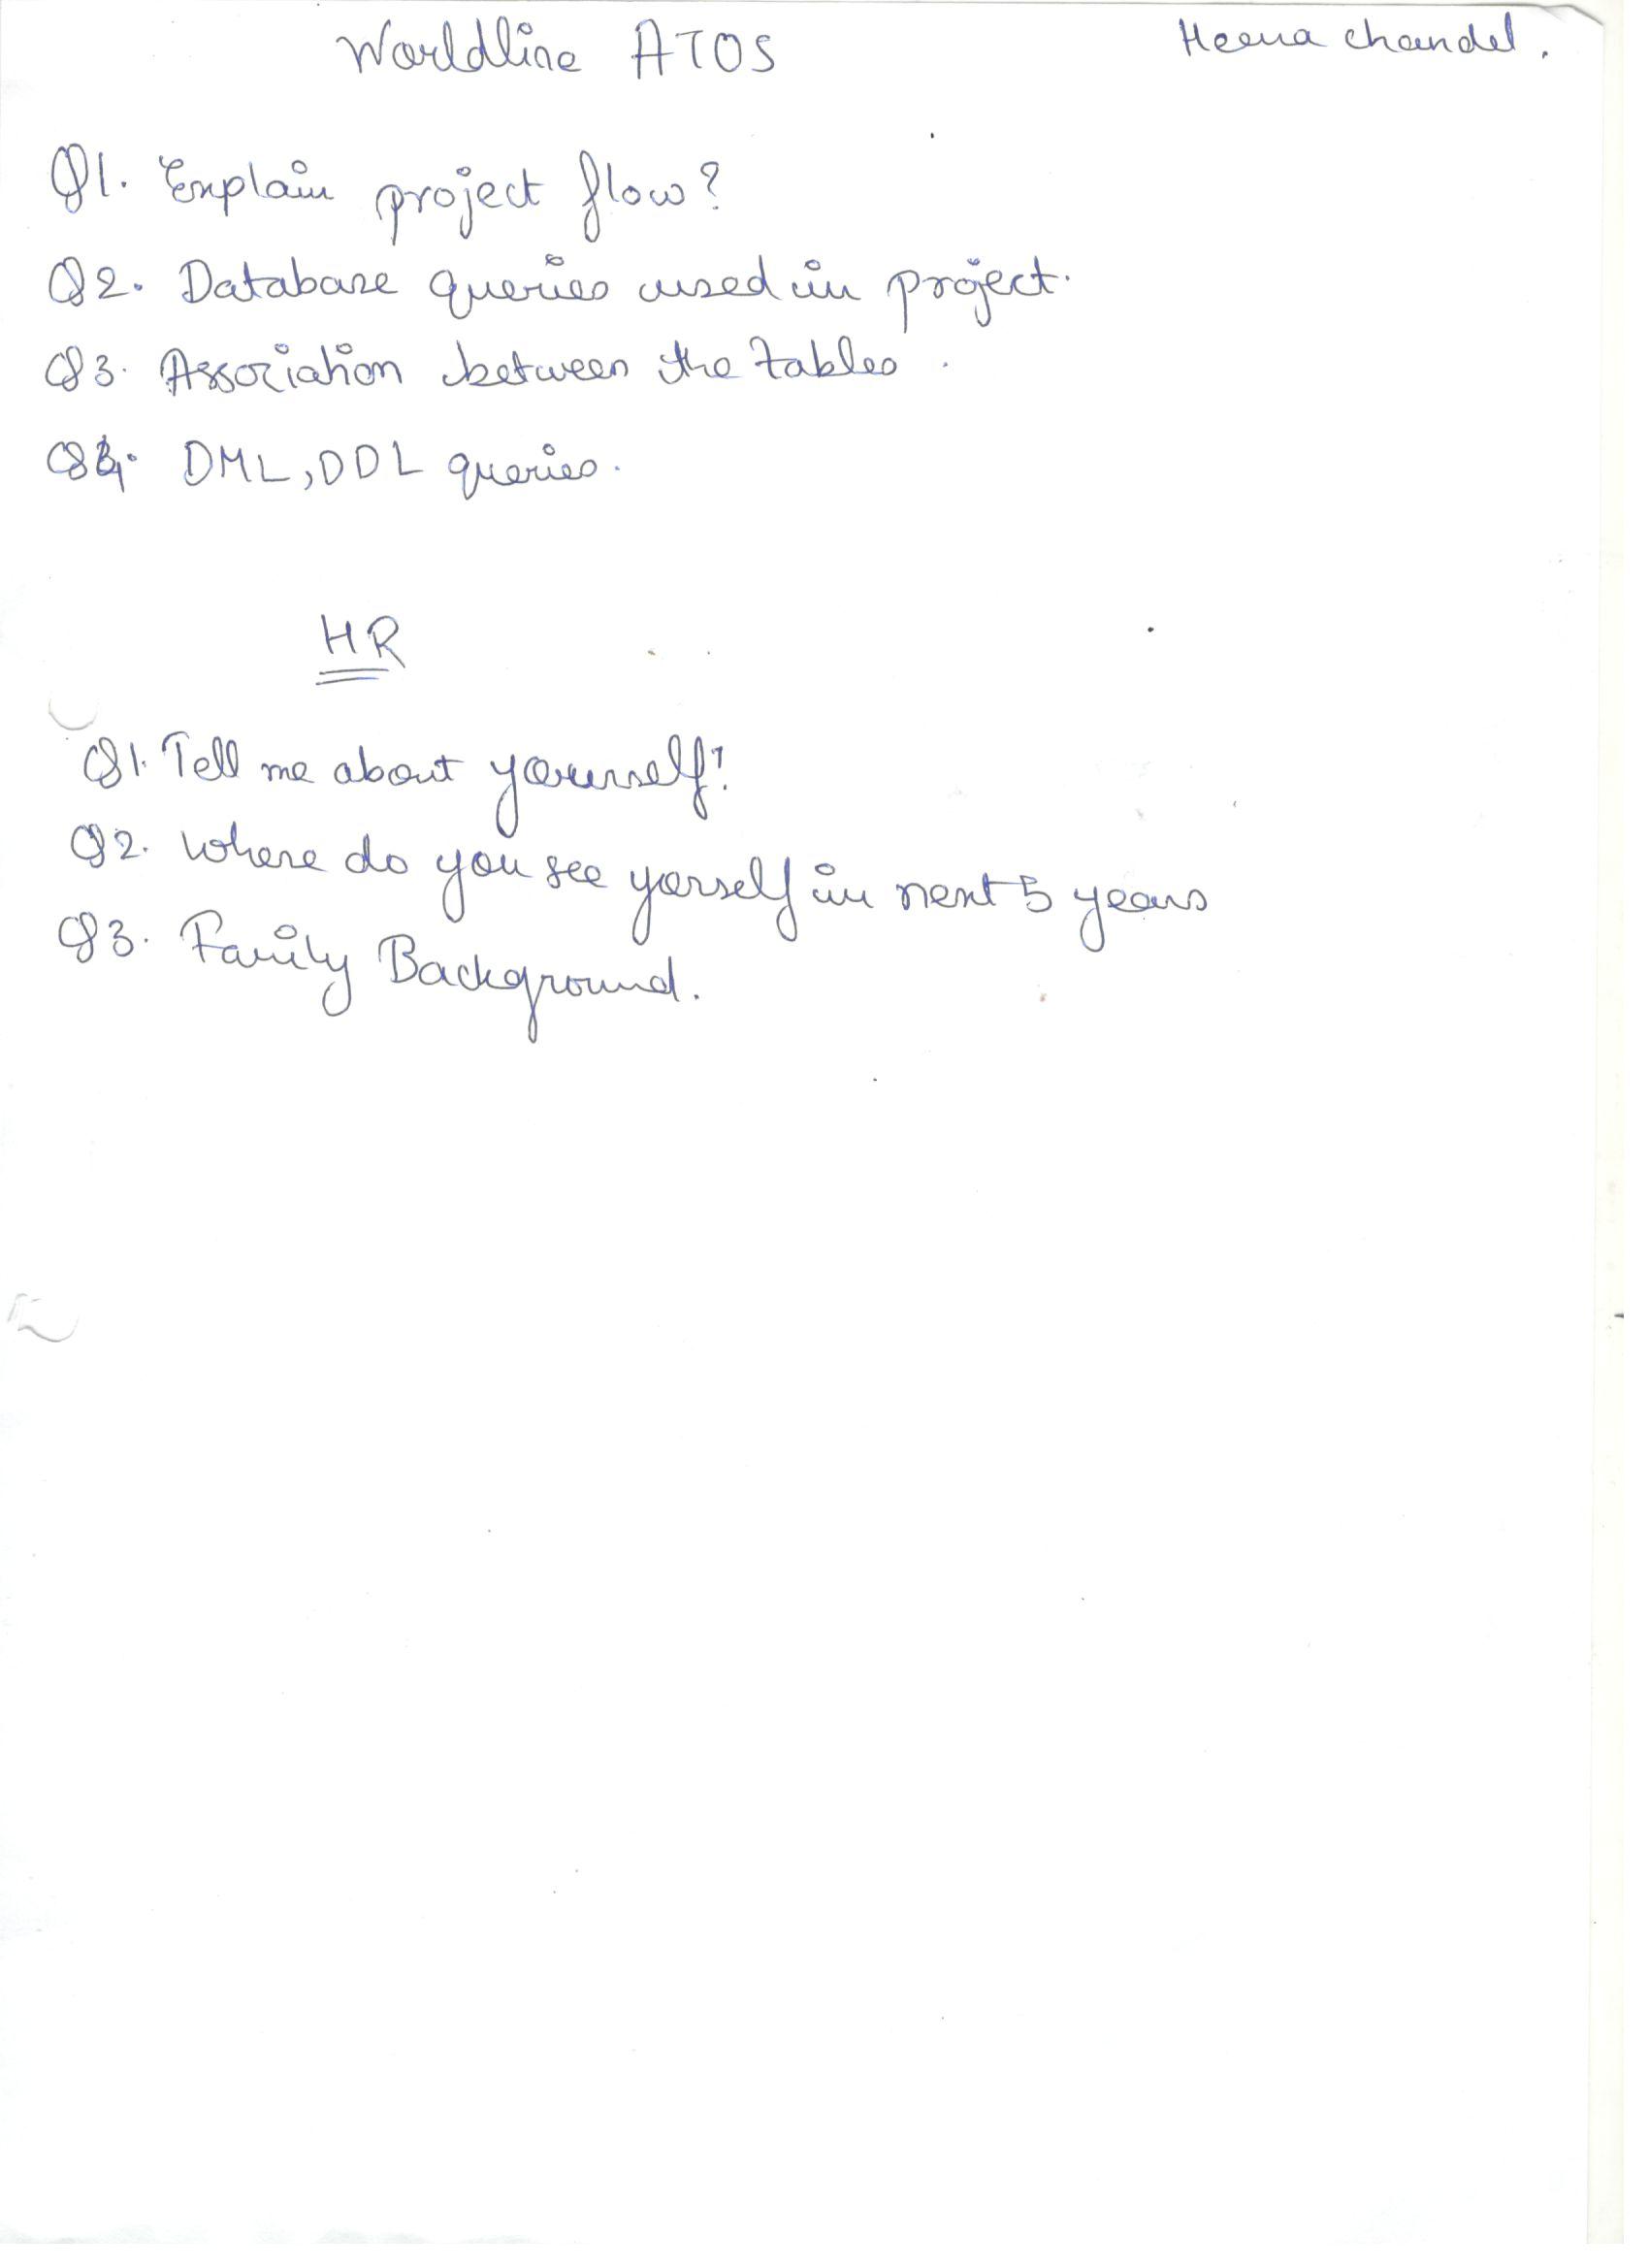 Worldline ATOS
Heena chandel.
Q1. Explain project flow?
Q2. Database queries used in project.
Q3. Association between the tables.
Q4. DML, DDL queries.
HR
Q1. Tell me about yourself?
Q2. Where do you see yorself in next 5 years
Q3. Family Background.